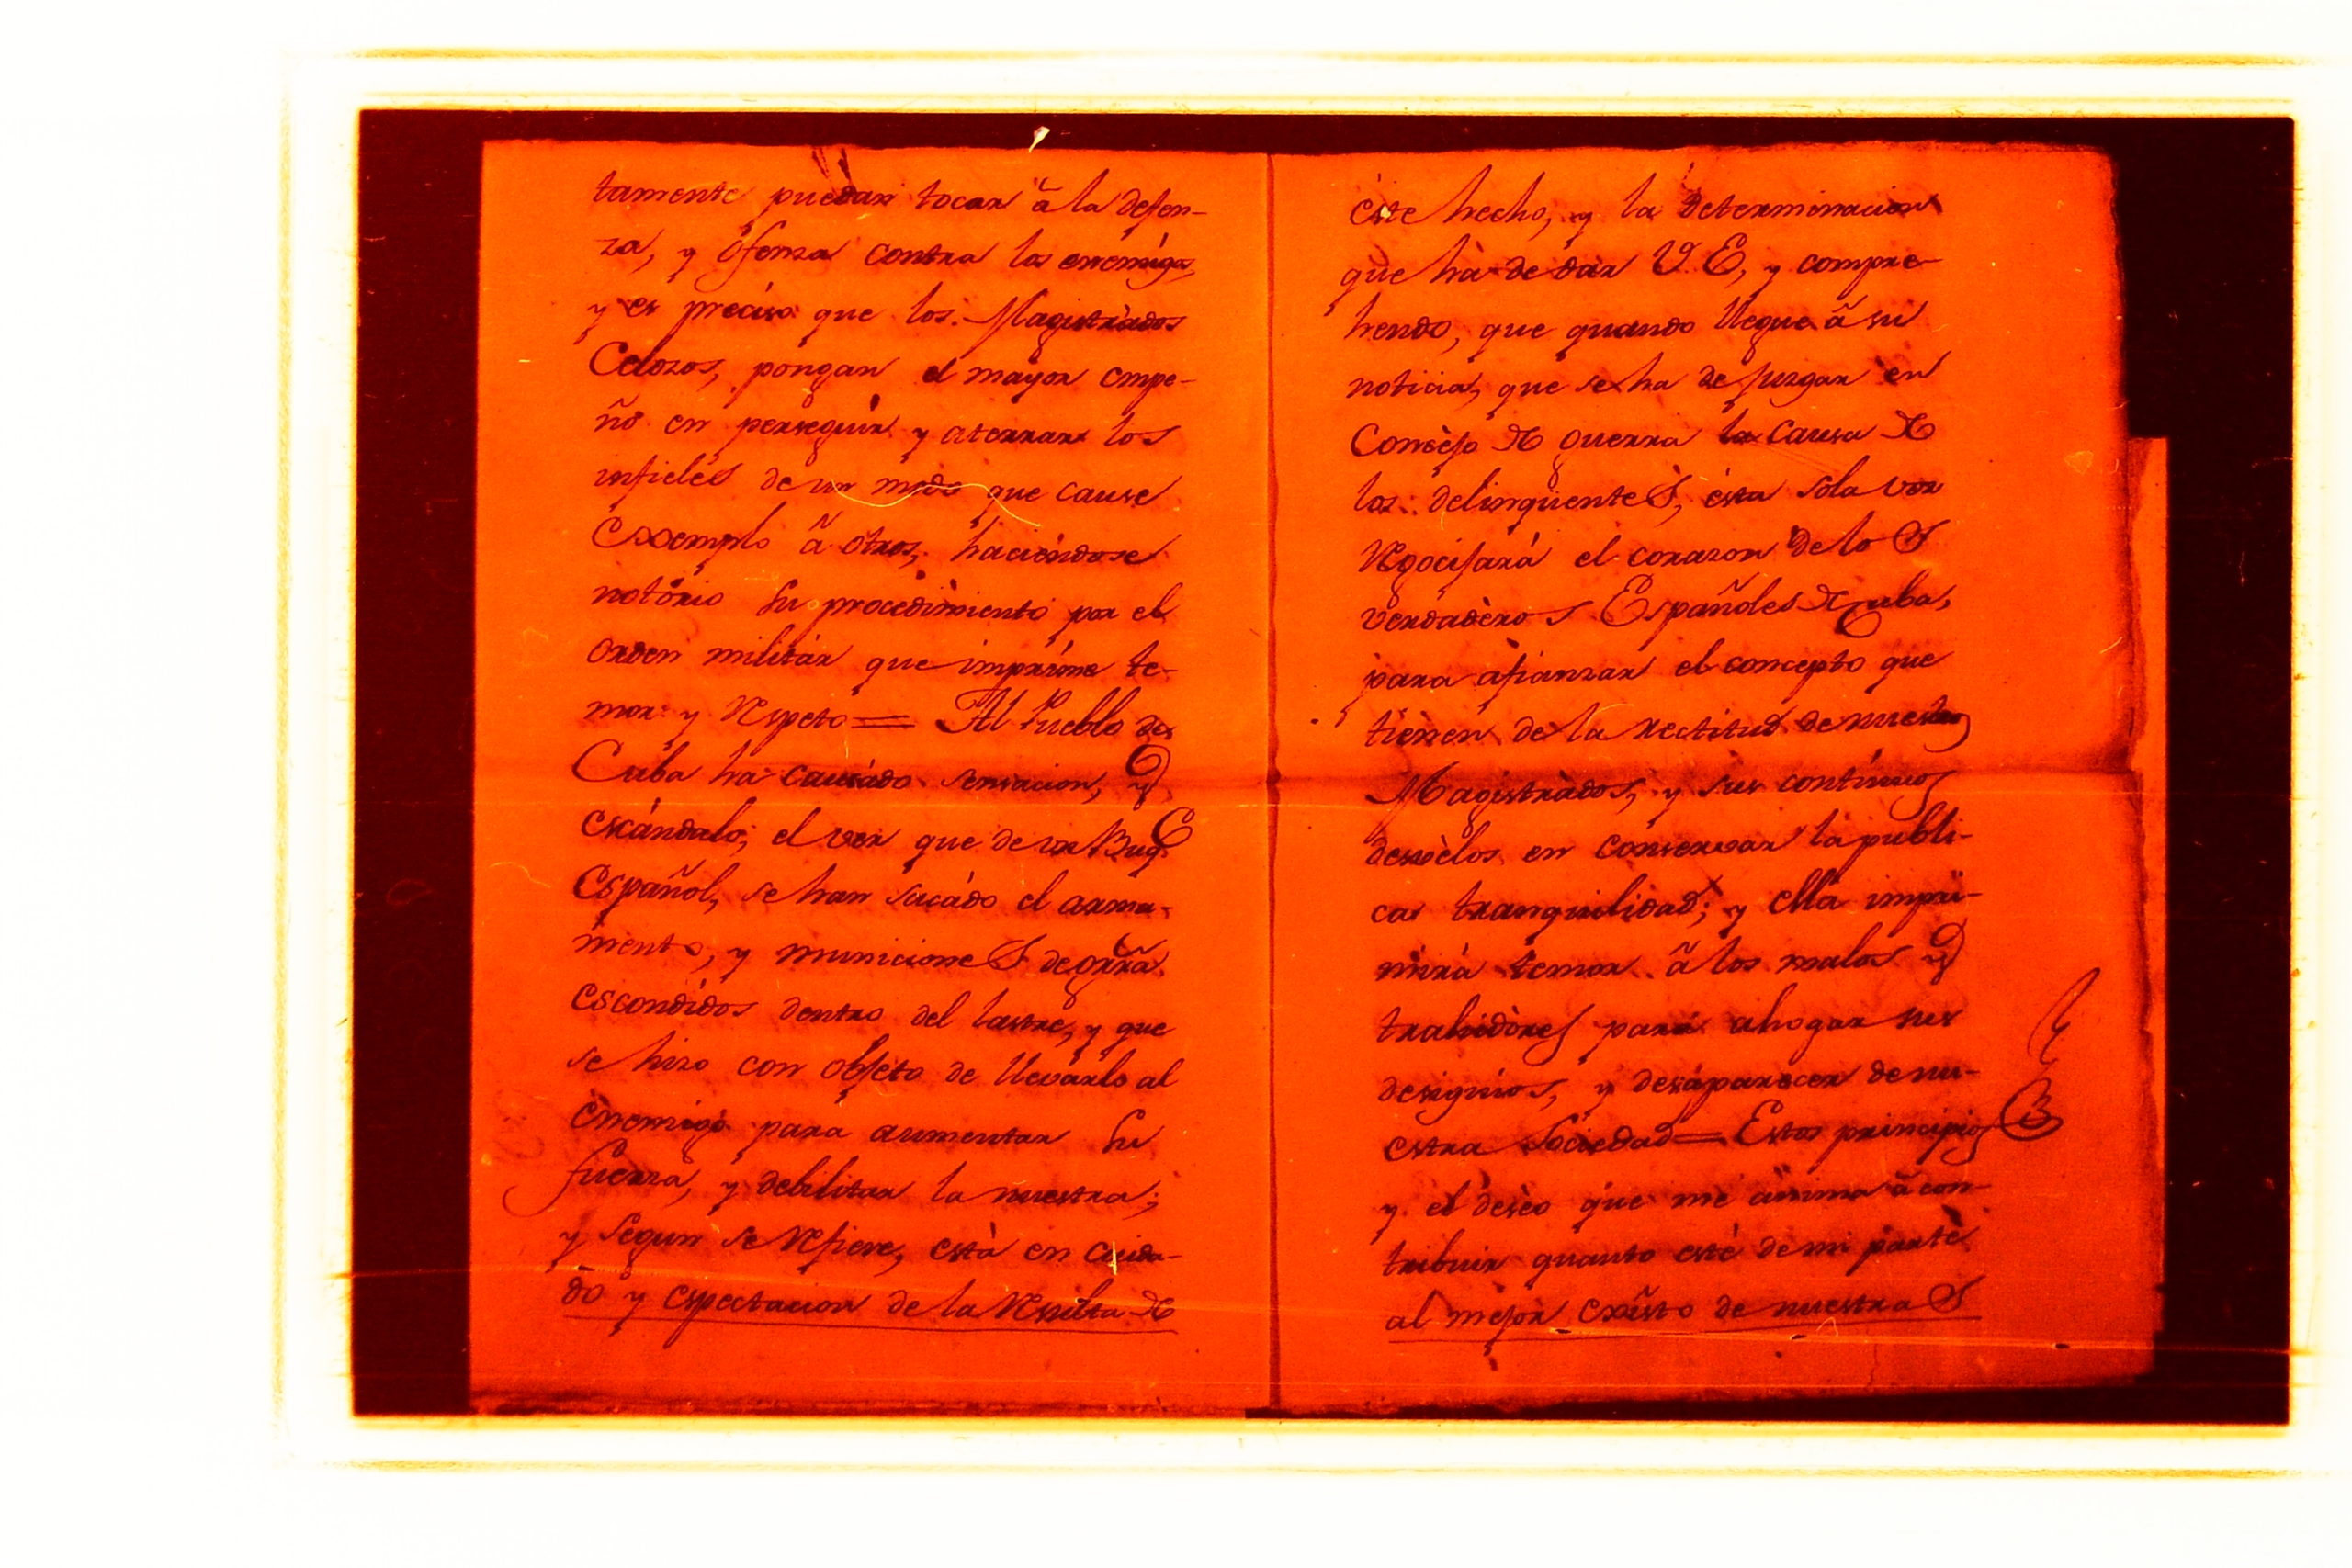 tamente puedan tocar â la defen-
za, y ôfenza contra los enemigos,
y es preciso que los Magistràdos
Celozos, pongan el mayor empe-
ño en perseguir y aterrar los
infieles de un modo que cause
Exemplo â otros, haciéndose
notório su procedimiento por el
orden militár que imprime te-
mor y respeto = Al Pueblo de
Cuba ha causádo sensacion, y
escándalo, el ver que de un Buqe
Español, se han sacádo el arma-
mento, y municiones de grrã
escondidos dentro del lastre, y que
se hizo con objeto de llevarlo al
enemigo para aumentar su
fuerza, y debilitar la nuestra;
y segun se refiere, está en cuida-
do y espectacion de la resulta de
éste hecho, y la determinacion
que hà de dar V.E, y compre-
hendo, que quando llegue â su
noticia, que se ha de juzgar en
Consèjo de guerra la causa de
los delinqüentes, ésta sola vos
regocijará el corazon de los
verdadèros Españoles de Cuba,
para afianzar el concepto que
tienen de la rectitud de nuestros
Magistràdos, y sus contínuos
desvèlos en conservar la publi-
ca tranquilidad; y ella impri-
mirá temor â los malos y
trahidòres para ahogar sus
designios, y desaparecer de nu-
estra Sociedad = Estos principios
y el deséo que me anima â con-
tribuir quanto esté de mi parte
al mejor exîsto de nuestras